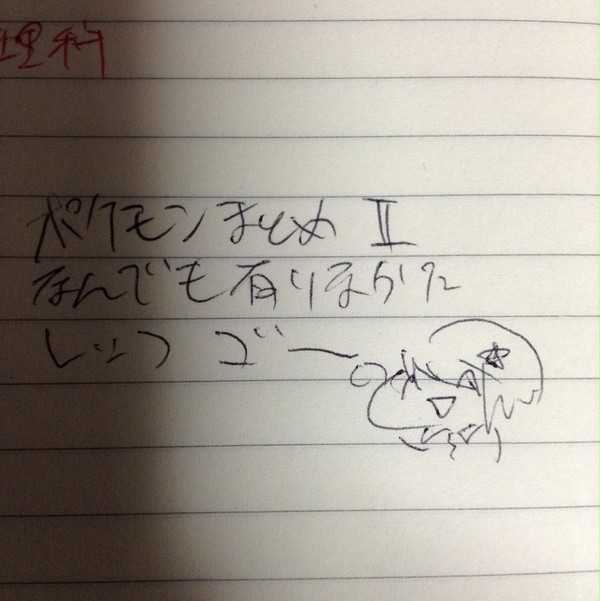 理科
ポケモンまとめ Ⅱ
なんでも有りまらた
レッツ ゴー